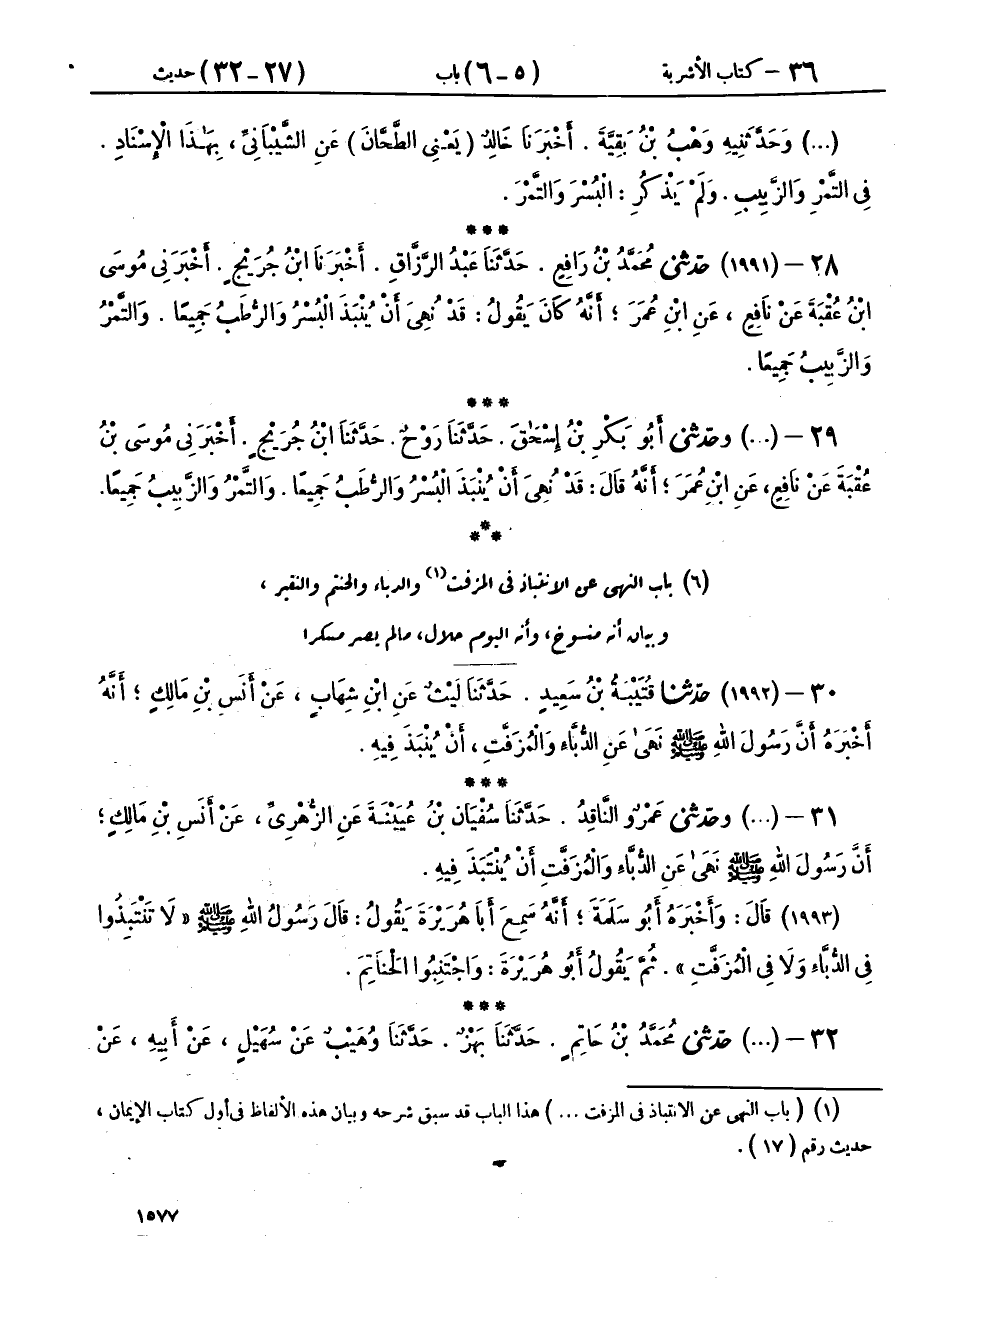 ٣٦ - كتاب الأشربة (٥ - ٦) باب (٢٧ - ٣٢) حديث
(...) وَحَدَّثَنِيهِ وَهْبُ بْنُ بَقِيَّةَ . أَخْبَرَنَا خَالِدٌ ( يَعْنِي الطَّحَّانَ ) عَنِ الشَّيْبَانِيِّ ، بِهَٰذَا الْإِسْنَادِ .
فِي التَّمْرِ وَالزَّبِيبِ . وَلَمْ يَذْكُرِ : الْبُسْرَ وَالتَّمْرَ .
***
٢٨ - (١٩٩١) حَدَّثَنِي مُحَمَّدُ بْنُ رَافِعٍ . حَدَّثَنَا عَبْدُ الرَّزَّاقِ . أَخْبَرَنَا ابْنُ جُرَيْجٍ . أَخْبَرَنِي مُوسَى
ابْنُ عُقْبَةَ عَنْ نَافِعٍ ، عَنِ ابْنِ عُمَرَ ؛ أَنَّهُ كَانَ يَقُولُ : قَدْ نُهِيَ أَنْ يُنْبَذَ الْبُسْرُ وَالرُّطَبُ جَمِيعًا . وَالتَّمْرُ
وَالزَّبِيبُ جَمِيعًا .
***
٢٩ - (...) وحَدَّثَنِي أَبُو بَكْرِ بْنُ إِسْحَٰقَ . حَدَّثَنَا رَوْحٌ . حَدَّثَنَا ابْنُ جُرَيْجٍ . أَخْبَرَنِي مُوسَى بْنُ
عُقْبَةَ عَنْ نَافِعٍ ، عَنِ ابْنِ عُمَرَ ؛ أَنَّهُ قَالَ : قَدْ نُهِيَ أَنْ يُنْبَذَ الْبُسْرُ وَالرُّطَبُ جَمِيعًا . وَالتَّمْرُ وَالزَّبِيبُ جَمِيعًا.
***
(٦) باب النهي عن الانتباذ في المزفت (١) والدباء والحنتم والنقير ،
وبيان أنه منسوخ، وأنه اليوم حلال، مالم يصر مسكرا
٣٠ - (١٩٩٢) حَدَّثَنَا قُتَيْبَةُ بْنُ سَعِيدٍ . حَدَّثَنَا لَيْثٌ عَنِ ابْنِ شِهَابٍ ، عَنْ أَنَسِ بْنِ مَالِكٍ ؛ أَنَّهُ
أَخْبَرَهُ أَنَّ رَسُولَ اللهِ ﷺ نَهَىٰ عَنِ الدُّبَّاءِ وَالْمُزَفَّتِ ، أَنْ يُنْبَذَ فِيهِ .
***
٣١ - (...) وحَدَّثَنِي عَمْرٌو النَّاقِدُ . حَدَّثَنَا سُفْيَانُ بْنُ عُيَيْنَةَ عَنِ الزُّهْرِيِّ ، عَنْ أَنَسِ بْنِ مَالِكٍ ؛
أَنَّ رَسُولَ اللهِ ﷺ نَهَىٰ عَنِ الدُّبَّاءِ وَالْمُزَفَّتِ أَنْ يُنْتَبَذَ فِيهِ .
(١٩٩٣) قَالَ : وَأَخْبَرَهُ أَبُو سَلَمَةَ ؛ أَنَّهُ سَمِعَ أَبَا هُرَيْرَةَ يَقُولُ : قَالَ رَسُولُ اللهِ ﷺ « لَا تَنْتَبِذُوا
فِي الدُّبَّاءِ وَلَا فِي الْمُزَفَّتِ » . ثُمَّ يَقُولُ أَبُو هُرَيْرَةَ : وَاجْتَنِبُوا الْحَنَاتِمَ .
***
٣٢ - (...) حَدَّثَنِي مُحَمَّدُ بْنُ حَاتِمٍ . حَدَّثَنَا بَهْزٌ . حَدَّثَنَا وُهَيْبٌ عَنْ سُهَيْلٍ ، عَنْ أَبِيهِ ، عَنْ
(١) ( باب النهي عن الانتباذ في المزفت ... ) هذا الباب قد سبق شرحه وبيان هذه الألفاظ في أول كتاب الإيمان ،
حديث رقم ( ١٧ ) .
١٥٧٧